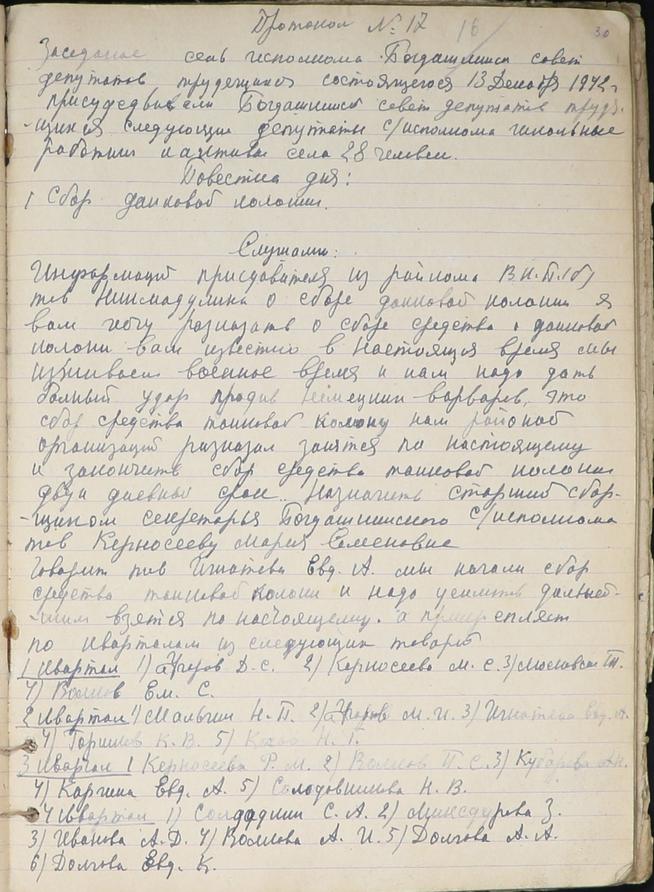 Протокол № 17 16 30
Заседание сель исполкома Богдашкинск совет
депутатов трудещихся состоящегося 13 Декабря 1942 г
присудсдвывали Богдашкинск совет депутатов трудя-
-щихся следующие депутаты с/исполкома школьные
работники и актива села 28 человек.
Повестка дня:
1 Сбор танковой колонки.
Слушали:
Информаций приставителя из райкома В.К.П.(б)
тов Нишмадулина о сборе танковой колонки я
вам хочу разказать о сборе средства о танковой
колонки вам известно в настоящея время мы
военное время и нам надо дать
больный удар против немецких варваров, это
сбор средства танковой колону нам районой
организаций разказал занятся по настоящему
и закончить сбор средства танковой колонки
двух дневный срок. Назначить старший сбор-
-щиком секретарья Богдашкинского с/исполкома
тов Керносееву Мария Семеновне
Говорит тов Игнатьева Евд. А. мы начали сбор
средства танковой колоны и надо усилить дальней-
-шим взятся по настоящему. а прикрепляет
по кварталам из следующих товарищ
1 квартал 1) Д. С. 2) Керносеева М. С. 3)
4) Волков Ем. С.
2 квартал 1) Малыгин Н. П. 2) М. И. 3) Игнатева Евд. А.
4) Горшков К. В. 5) Н. Г.
3 квартал 1 Керносеева Р. М. 2) Волков П. С. 3) Кубарева А.Н.
4) Каргина Евд. А. 5) Солодовникова Н. В.
4 квартал 1) С. А. 2) З.
3) Иванова А. Д. 4) Волкова А. И. 5) Долгова А. А.
6) Долгова Евд. К.